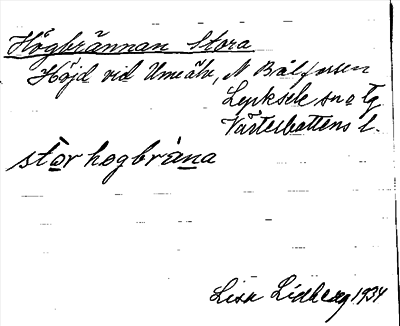 Högbrännan Stora
Höjd vid Umeälv, N Bålforsen
Lycksele sn o tg
Västerbottens l.
stor hogbrana
Lisa Lidberg 1934